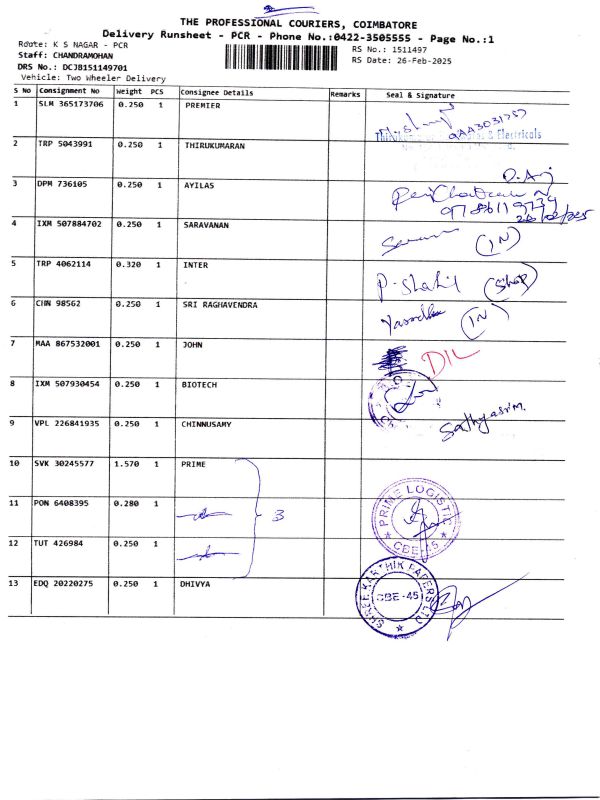 THE PROFESSIONAL COURIERS, COIMBATORE
Delivery Runsheet - PCR - Phone No.:0422-3505555 - Page No.:1
Route: K S NAGAR - PCR
RS No.: 1511497
Staff: CHANDRAMOHAN
RS Date: 26-Feb-2025
DRS No.: DCJB151149701
Vehicle: Two Wheeler Delivery
S No Consignment No Weight PCS Consignee Details Remarks Seal & Signature
1 SLM 365173706 0.250 1 PREMIER
& Electricals
2 TRP 5043991 0.250 1 THIRUKUMARAN
3 DPM 736105 0.250 1 AYILAS
4 IXM 507884702 0.250 1 SARAVANAN (IN)
5 TRP 4062114 0.320 1 INTER P. Shahil (Shop)
6 CHN 98562 0.250 1 SRI RAGHAVENDRA Yasodha (IN)
7 MAA 867532001 0.250 1 JOHN DIL
8 IXM 507930454 0.250 1 BIOTECH
9 VPL 226841935 0.250 1 CHINNUSAMY
10 SVK 30245577 1.570 1 PRIME
11 PON 6408395 0.280 1 3 PRIME LOGISTIC CBE-45
12 TUT 426984 0.250 1
13 EDQ 20220275 0.250 1 DHIVYA SHREE KARTHIK PAPERS LTD CBE-45